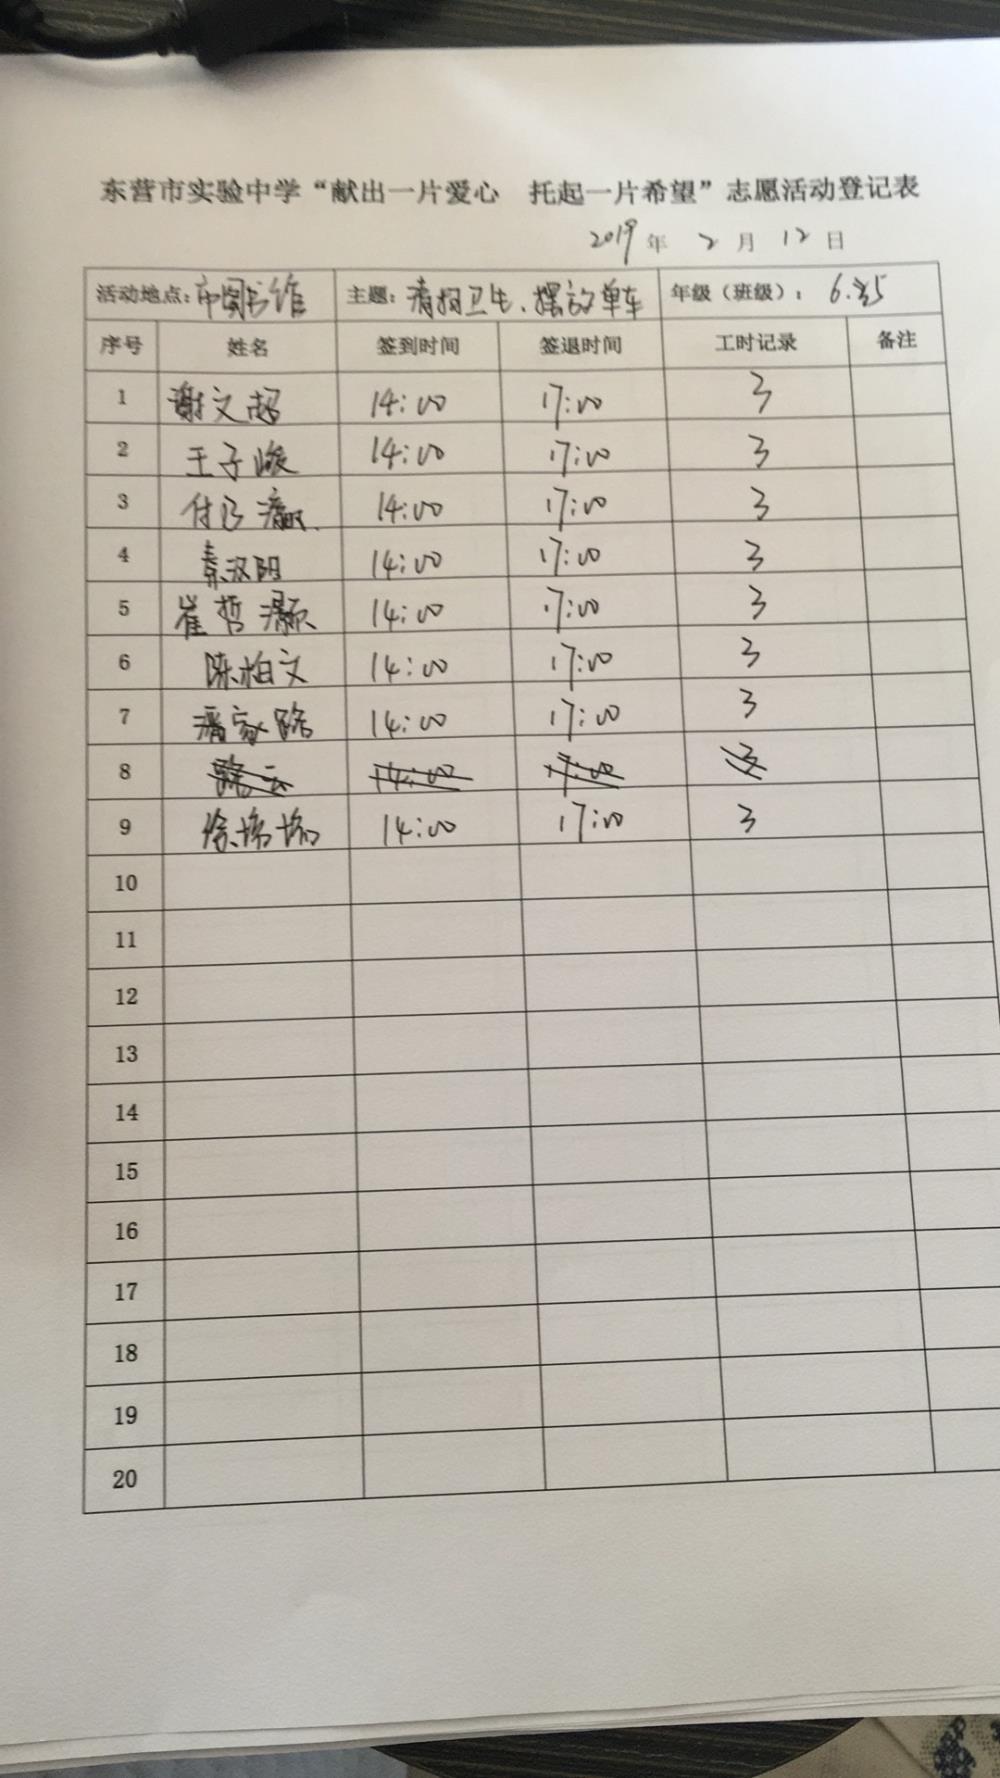 东营市实验中学“献出一片爱心 托起一片希望”志愿活动登记表
2019年 2月 12日
活动地点:市图书馆 主题:清扫卫生、摆放单车 年级(班级):6.35
序号 姓名 签到时间 签退时间 工时记录 备注
1 谢文超 14:00 17:00 3
2 王子峻 14:00 17:00 3
3 14:00 17:00 3
4 秦汉阳 14:00 17:00 3
5 崔哲灏 14:00 17:00 3
6 陈柏文 14:00 17:00 3
7 潘家 14:00 17:00 3
8 14:00 17:00 3
9 徐 14:00 17:00 3
10
11
12
13
14
15
16
17
18
19
20